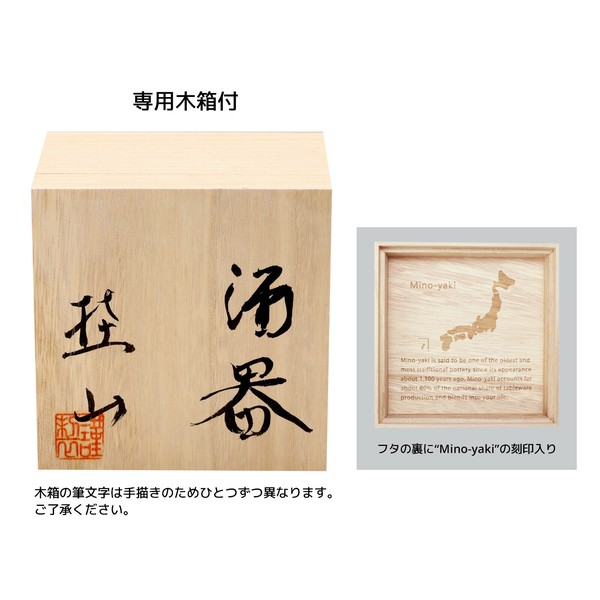 専用木箱付
酒器
埜山
謹製
Mino-yaki
Mino-yaki is said to be one of the oldest and
most traditional pottery since its appearance
about 1,300 years ago. Mino-yaki accounts for
about 60% of the national share of tableware
production and blends into your life.
フタの裏に“Mino-yaki”の刻印入り
木箱の筆文字は手描きのためひとつずつ異なります。
ご了承ください。